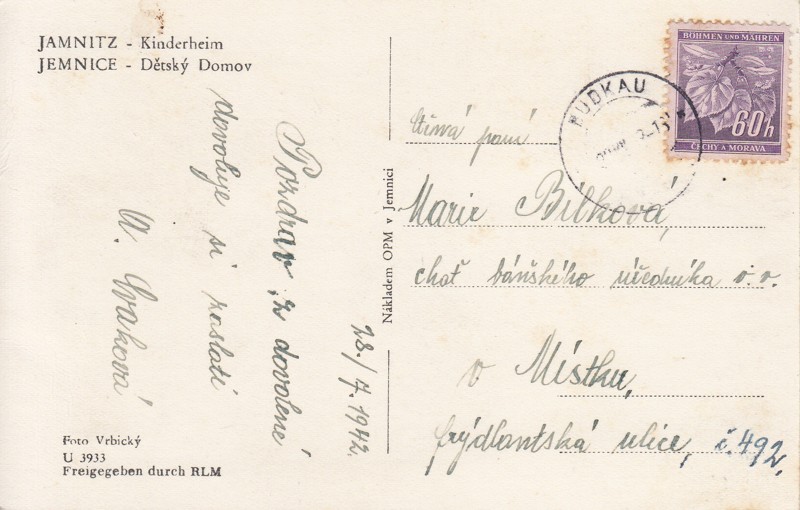 JAMNITZ - Kinderheim
JEMNICE - Dětský Domov
28./7. 1942.
Pozdrav z dovolené
dovoluje si zaslati
Foto Vrbický
U 3933
Freigegeben durch RLM
Nákladem OPM v Jemnici
BÖHMEN UND MÄHREN
60h
ČECHY A MORAVA
BUDKAU
Ctěná paní
Marie Bílková,
choť báňského úředníka v.v.
v Místku,
frýdlantská ulice, č. 492,